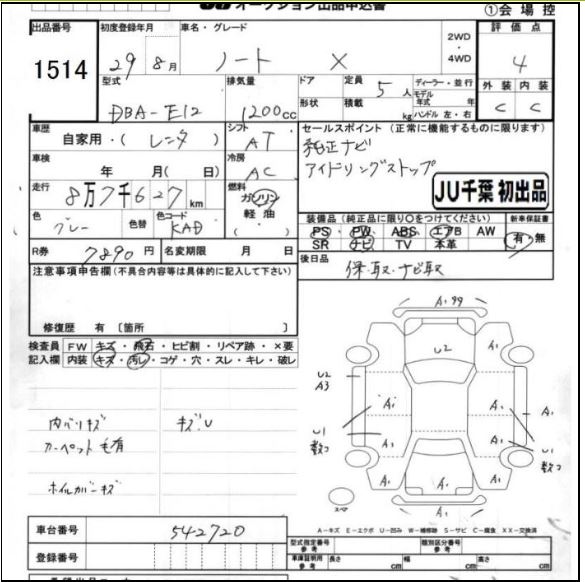 オークション出品申込書
①会場控
出品番号 初度登録年月 車名・グレード 評価点
1514 29年8月 ノート X 2WD・4WD 4
型式 排気量 ドア 定員 5人 ディーラー・並行 外装 内装
DBA-E12 1200cc 形状 積載 kg モデル年式 年 ハンドル 左・右 C C
車歴 自家用・(レンタ) シフト AT セールスポイント (正常に機能するものに限ります)
純正ナビ
アイドリングストップ
車検 年 月(日) 冷房 AC
JU千葉 初出品
走行 8万7千627km 燃料 ガソリン・軽油
色 グレー 色替 色コード KAD
装備品(純正品に限り○をつけてください) 新車保証書
PS・PW・ABS・エアB AW 有・無
SR ナビ・TV 本革
R券 7890円 名変期限 月 日
後日品 保・取・ナビ取
注意事項申告欄(不具合内容等は具体的に記入して下さい)
修復歴 有〔箇所 〕
検査員記入欄 FW キズ・飛石・ヒビ割・リペア跡・×要
内装 キズ・汚レ・コゲ・穴・スレ・キレ・破レ
内バリキズ キズ.U
カーペット毛有
ホイルガバーキズ
A1 99
U2
U2
A3
A1 A1
A1 A1 A1
U1 U1
数ヶ所 数ヶ所
A1 A1
A1 A1
A1
スペア
A-キズ E-エクボ U-凹み W-補修跡 S-サビ C-腐食 XX-交換済
車台番号 542720
登録番号
型式指定番号 参考 類別区分番号 参考
車庫証明用 参考 長さ cm 幅 cm 高さ cm